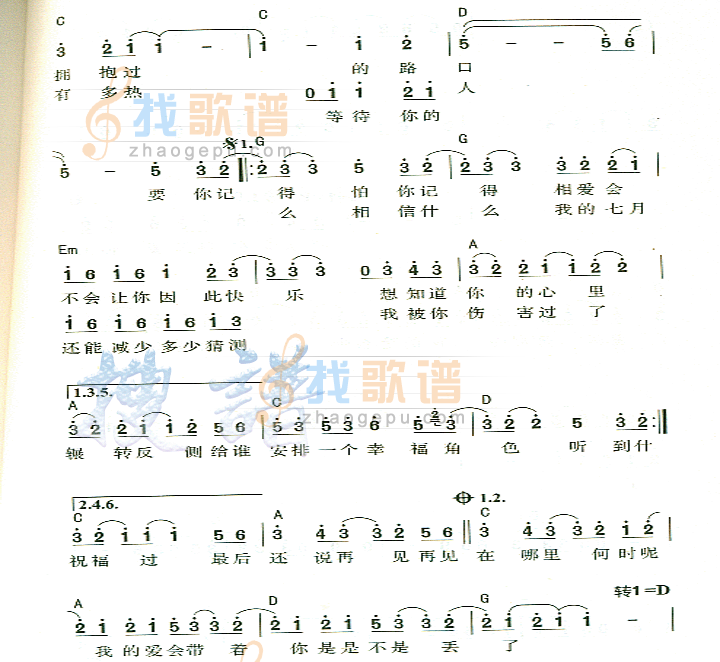 C C D
3 2 1 1 - 1 - 1 2 5 - - 5 6
拥 抱过 的 路 口
有 多热 0 1 1 2 1 人
等待 你的
找歌谱
zhaogepu.com
1. G G
5 - 5 3 2 :2 3 3 5 3 2 2 3 3 3 2 2 1
要 你记 得 怕 你记 得 相爱会
么 相 信什 么 我的七月
Em A
1 6 1 6 1 2 3 3 3 3 0 3 4 3 3 2 2 1 1 2 2
不会让你因 此快 乐 想知道 你 的心 里
1 6 1 6 1 6 1 3 我被你 伤 害过 了
还能减少多少猜测
搜谱 找歌谱
1.3.5. zhaogepu.com
A C D
3 2 2 1 1 2 5 6 5 3 5 3 6 5 2 3 3 2 2 5 3 2
辗 转反 侧给谁 安排一个幸 福角 色 听 到什
2.4.6. 1.2.
C A C
3 2 1 1 1 5 6 3 4 3 3 2 5 6 3 4 3 3 2 1 2
祝福 过 最后 还 说再 见再见 在 哪里 何时呢
转1=D
A D G
2 1 2 1 5 3 3 2 2 1 2 1 5 3 3 2 2 1 1 -
我 的爱会带 着 你 是是不是 丢 了